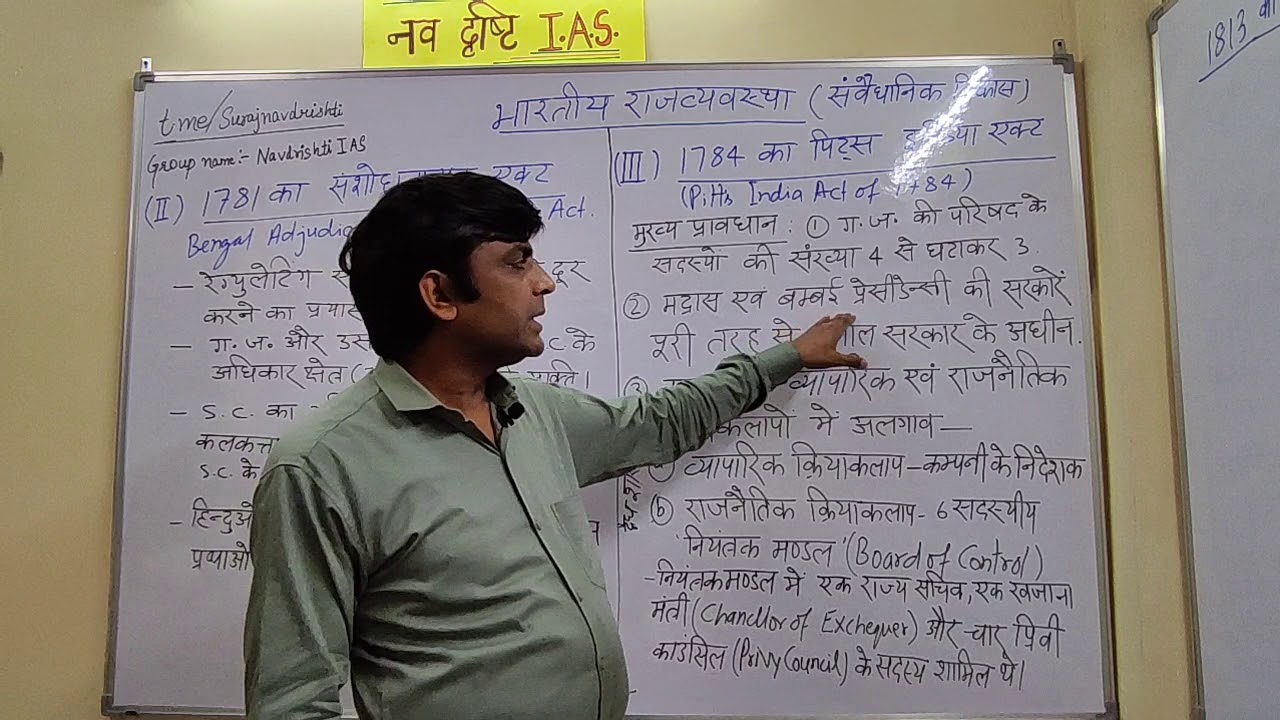 नव दृष्टि I.A.S.
t.me/Surajnavdrishti
Group name:- Navdrishti IAS
भारतीय राजव्यवस्था (संवैधानिक विकास)
(II) 1781 का एक्ट
Bengal Act.
– रेग्युलेटिंग दूर
करने का प्रयास
– ग.ज. और के
अधिकार क्षेत्र
– S.C. का
कलकत्ता
S.C. के
– हिन्दुओं
प्रथाओं
(III) 1784 का पिट्स इण्डिया एक्ट
(Pitt's India Act of 1784)
मुख्य प्रावधान : ① ग.ज. की परिषद के
सदस्यों की संख्या 4 से घटाकर 3.
② मद्रास एवं बम्बई प्रेसीडेन्सी की सरकारें
पूरी तरह से सरकार के अधीन.
③ व्यापारिक एवं राजनैतिक
में अलगाव—
व्यापारिक क्रियाकलाप – कम्पनी के निदेशक
ⓑ राजनैतिक क्रियाकलाप - 6 सदस्यीय
'नियंत्रक मण्डल' (Board of Control)
-नियंत्रक मण्डल में एक राज्य सचिव, एक खजाना
मंत्री (Chancllor of Exchequer) और चार प्रिवी
काउंसिल (Privy Council) के सदस्य शामिल थे।
1813 का